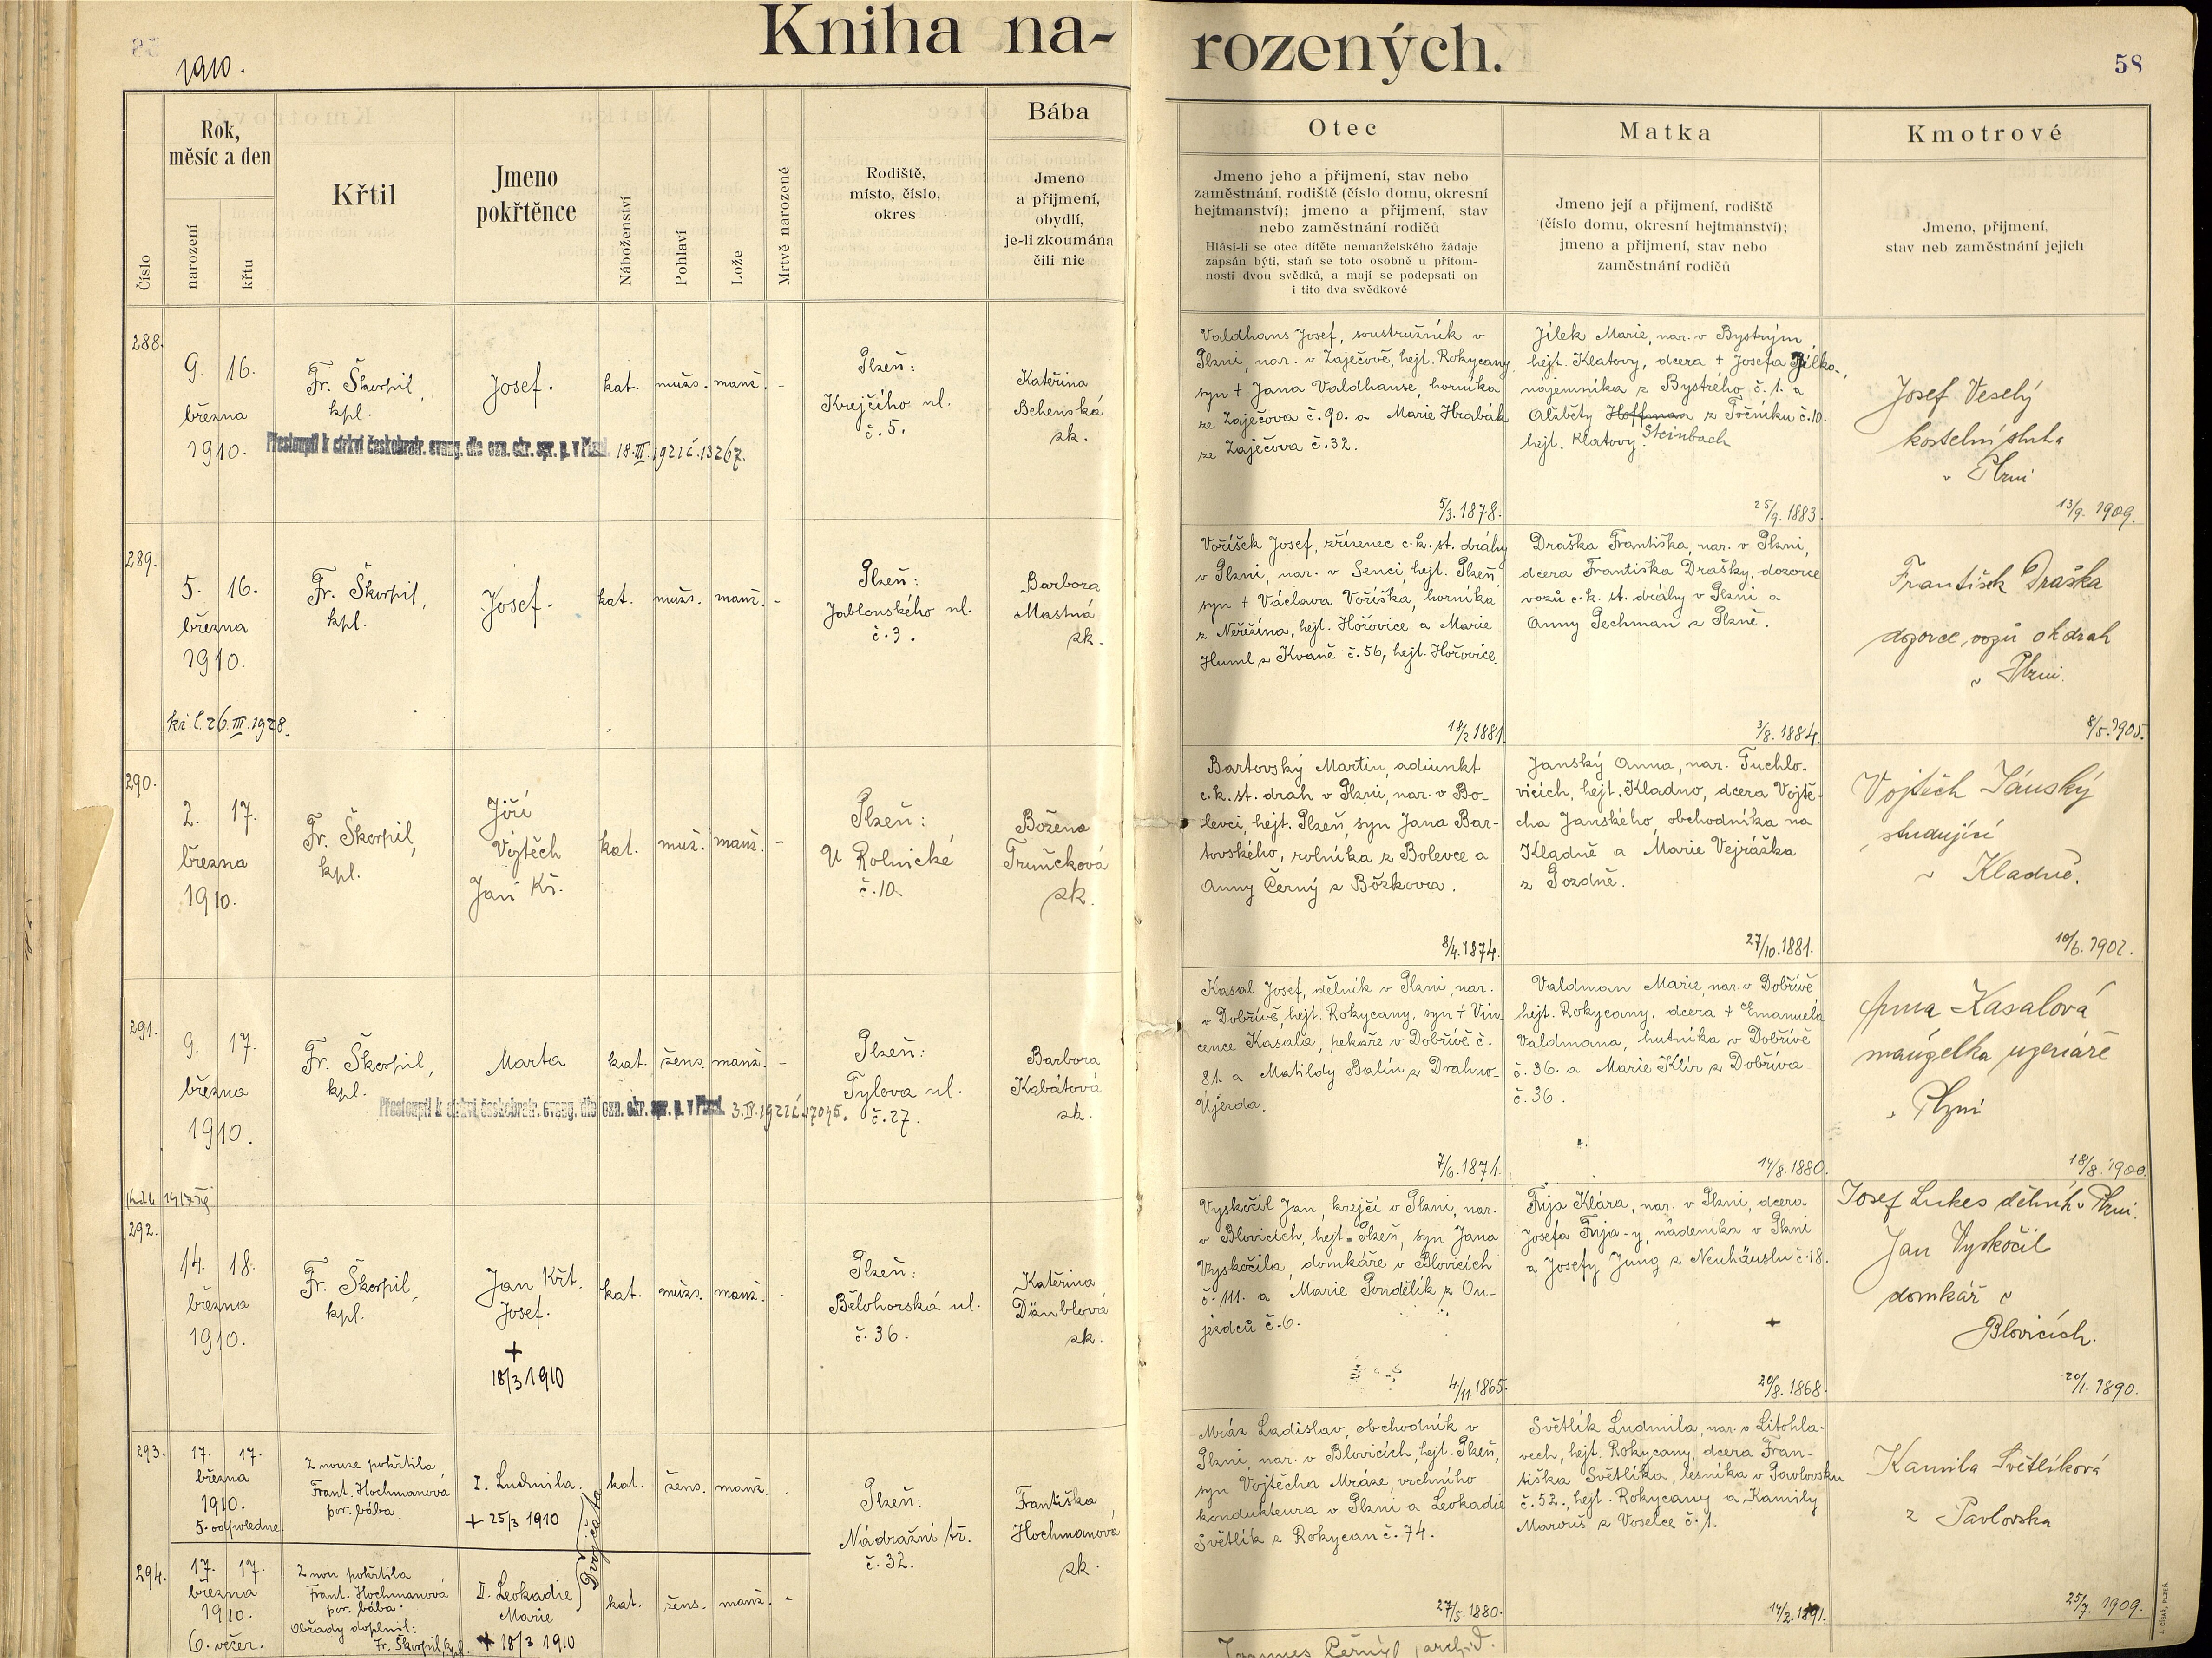 Kniha na-
rozených.
58
1910.
Číslo
Rok,
měsíc a den
narození
křtu
Křtil
Jmeno
pokřtěnce
Náboženství
Pohlaví
Lože
Mrtvě narozené
Rodiště,
místo, číslo,
okres
Bába
Jmeno
a příjmení,
obydlí,
je-li zkoumána
čili nic
Otec
Jmeno jeho a příjmení, stav nebo
zaměstnání, rodiště (číslo domu, okresní
hejtmanství); jmeno a příjmení, stav
nebo zaměstnání rodičů
Hlásí-li se otec dítěte nemanželského žádaje
zapsán býti, staň se toto osobně u přítom-
nosti dvou svědků, a mají se podepsati on
i tito dva svědkové
Matka
Jmeno její a příjmení, rodiště
(číslo domu, okresní hejtmanství);
jmeno a příjmení, stav nebo
zaměstnání rodičů
Kmotrové
Jmeno, příjmení,
stav neb zaměstnání jejich
288.
9. 16.
března
1910.
Fr. Škorpil,
kpl.
Josef.
kat.
mužs.
manž.
-
Plzeň:
Krejčího ul.
č. 5.
Kateřina
Behenská
zk.
Přestoupil k církvi českobratr. evang. dle ozn. okr. spr. p. v Plzni 18.III.1921 č.13267.
Valdhans Josef, soustružník v
Plzni, nar. v Zaječově, hejt. Rokycany
syn † Jana Valdhanse, horníka
ze Zaječova č. 90. a Marie Hrabák
ze Zaječova č. 32.
5/3. 1878.
Jílek Marie, nar. v Bystrým
hejt. Klatovy, dcera † Josefa Jílka,
nájemníka z Bystrého, č. 1. a
Alžběty Hoffman z Točníku č. 10.
hejt. Klatovy. Steinbach
25/9. 1883.
Josef Veselý
kostelní sluha
v Plzni
13/9. 1909.
289.
5. 16.
března
1910.
Fr. Škorpil,
kpl.
Josef.
kat.
mužs.
manž.
-
Plzeň:
Jablonského ul.
č. 3.
Barbora
Mastná
zk.
26.III.1928.
Voříšek Josef, zřízenec c. k. st. dráhy
v Plzni, nar. v Senci, hejt. Plzeň
syn † Václava Voříška, horníka
z Neřežína, hejt. Hořovice a Marie
Huml z Kvaně č. 56, hejt. Hořovice.
18/2 1881.
Draška Františka, nar. v Plzni,
dcera Františka Drašky, dozorce
vozů c. k. st. dráhy v Plzni a
Anny Pechman z Plzně.
3/8. 1884.
František Draška
dozorce vozů
v Plzni.
8/5. 1905.
290.
2. 17.
března
1910.
Fr. Škorpil,
kpl.
Jiří
Vojtěch
Jan Kř.
kat.
muž.
manž.
-
Plzeň:
U Rolnické
č. 10.
Božena
Trunčková
zk.
Bartovský Martin, adjunkt
c. k. st. drah v Plzni, nar. v Bo-
levci, hejt. Plzeň, syn Jana Bar-
tovského, rolníka z Bolevce a
Anny Černý z Božkova.
8/4. 1874.
Janský Anna, nar. Tuchlo-
vicích, hejt. Kladno, dcera Vojtě-
cha Janského, obchodníka na
Kladně a Marie Vejražka
z Pozdně.
27/10. 1881.
Vojtěch Jánský
studující
v Kladně.
10/6. 1902.
291.
9. 17.
března
1910.
Fr. Škorpil,
kpl.
Marta
kat.
žens.
manž.
-
Plzeň:
Tylova ul.
č. 27.
Barbora
Kabátová
zk.
Přestoupil k církvi českobratr. evang. dle ozn. okr. spr. p. v Plzni. 3.IV.1921 č.17045.
Kasal Josef, dělník v Plzni, nar.
v Dobřívě, hejt. Rokycany, syn † Vin-
cence Kasala, pekaře v Dobřívě č.
81. a Matildy Balín z Drahno-
Újezda.
7/6. 1871.
Valdman Marie, nar. v Dobřívě
hejt. Rokycany, dcera † Emanuela
Valdmana, hutníka v Dobřívě
č. 36. a Marie Klír z Dobříva
č. 36.
14/8. 1880.
Anna Kasalová
manželka uzenáře
v Plzni
18/8. 1900.
292.
14. 18.
března
1910.
Fr. Škorpil,
kpl.
Jan Křt.
Josef.
+
18/3 1910
kat.
mužs.
manž.
-
Plzeň:
Bělohorská ul.
č. 36.
Kateřina
Dänblová
zk.
Vyskočil Jan, krejčí v Plzni, nar.
v Blovicích, hejt. Plzeň, syn Jana
Vyskočila, domkáře v Blovicích
č. 111. a Marie Pondělík z Ou-
jezdců č. 6.
4/11. 1865.
Frija Klára, nar. v Plzni, dcera
Josefa Frija-y, nádeníka v Plzni
a Josefy Jung z Neuhäuslu č. 18.
+
20/8. 1868.
Josef Lukes dělník v Plzni.
Jan Vyskočil
domkář v
Blovicích.
20/1. 1890.
293.
17. 17.
března
1910.
5. odpoledne.
Z nouze pokřtila
Frant. Hochmanová
por. bába.
I. Ludmila.
+ 25/3 1910
Dvojčata
kat.
žens.
manž.
Plzeň:
Nádražní tř.
č. 32.
Františka
Hochmanová
zk.
Mráz Ladislav, obchodník v
Plzni, nar. v Blovicích, hejt. Plzeň,
syn Vojtěcha Mráze, vrchního
kondukteura v Plzni a Leokadie
Světlík z Rokycan č. 74.
27/5. 1880.
Světlík Ludmila, nar. v Litohla-
vech, hejt. Rokycany, dcera Fran-
tiška Světlíka, lesníka v Pavlovsku
č. 52., hejt. Rokycany a Kamily
Marouš z Voselce č. 1.
14/2. 1891.
Kamila Světlíková
z Pavlovska
25/7. 1909.
294.
17. 17.
března
1910.
6. večer.
Z nou pokřtila
Frant. Hochmanová
por. bába.
Obřady doplnil:
Fr. Škorpil, kpl.
II. Leokadie
Marie
+ 18/3 1910
kat.
žens.
manž.
-
Joannes Černý, archid.
J. CÍSAŘ, PLZEŇ